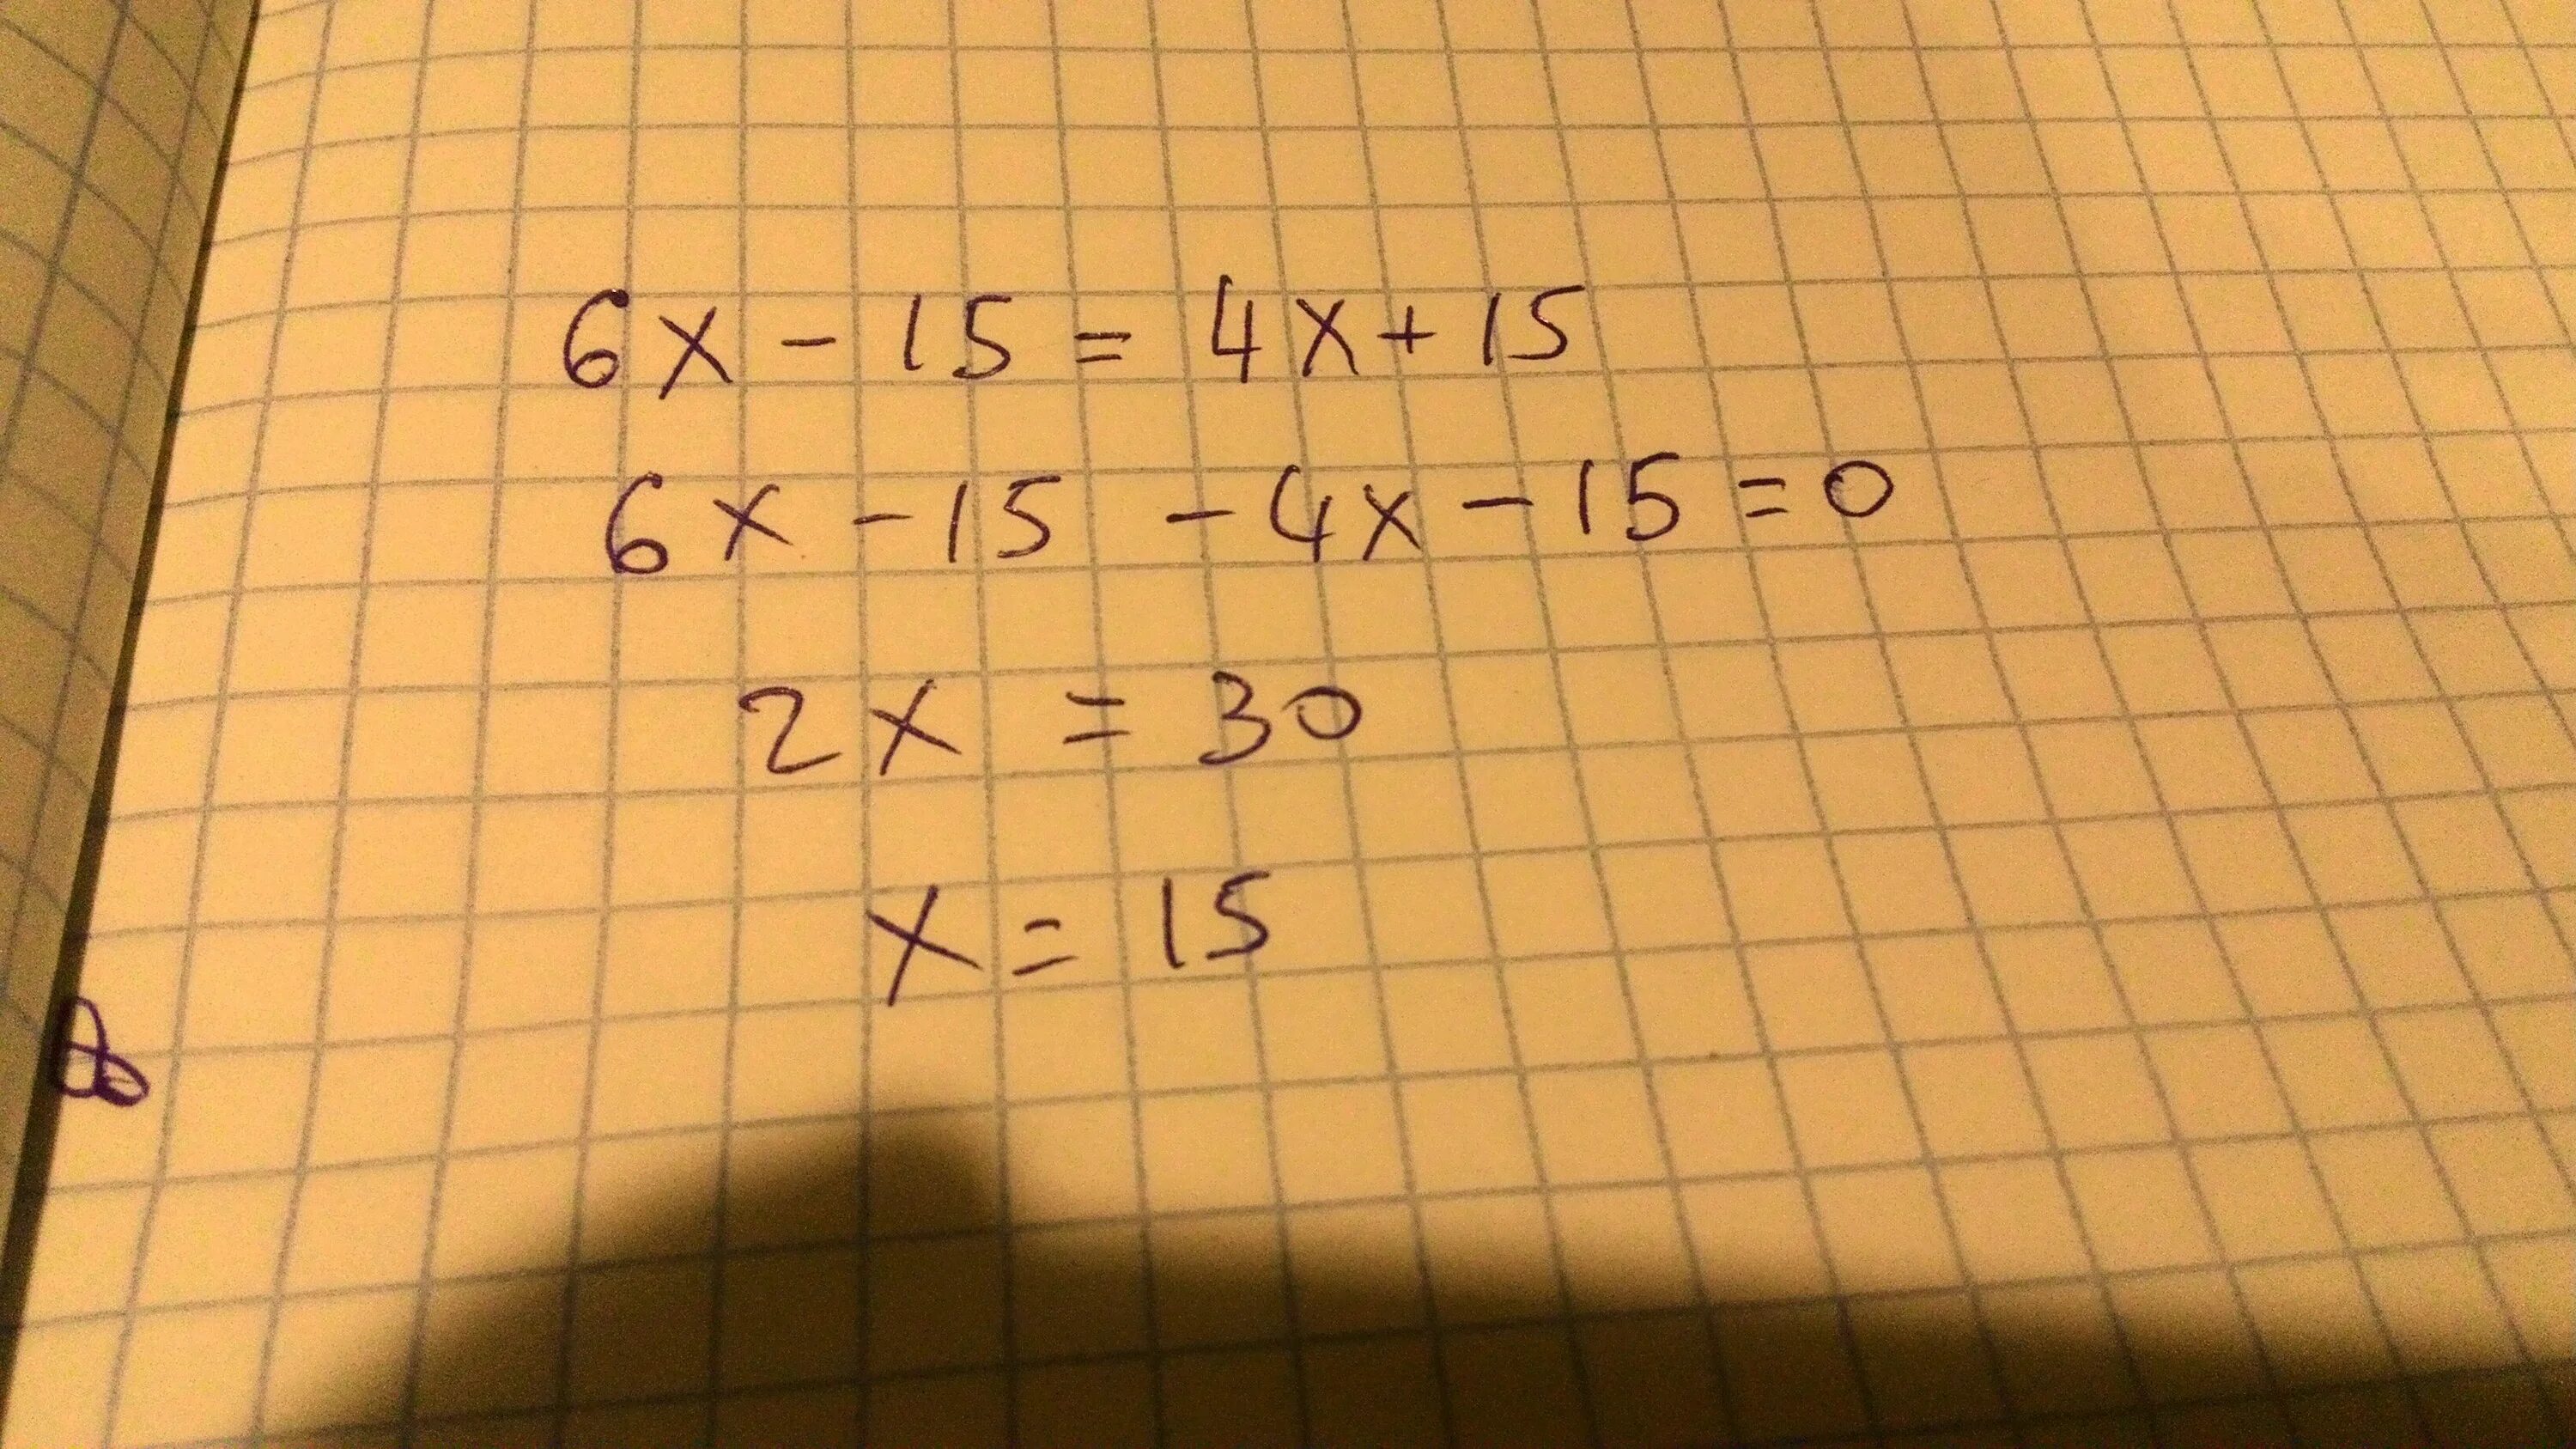 6x - 15 = 4x + 15
6x - 15 - 4x - 15 = 0
2x = 30
x = 15